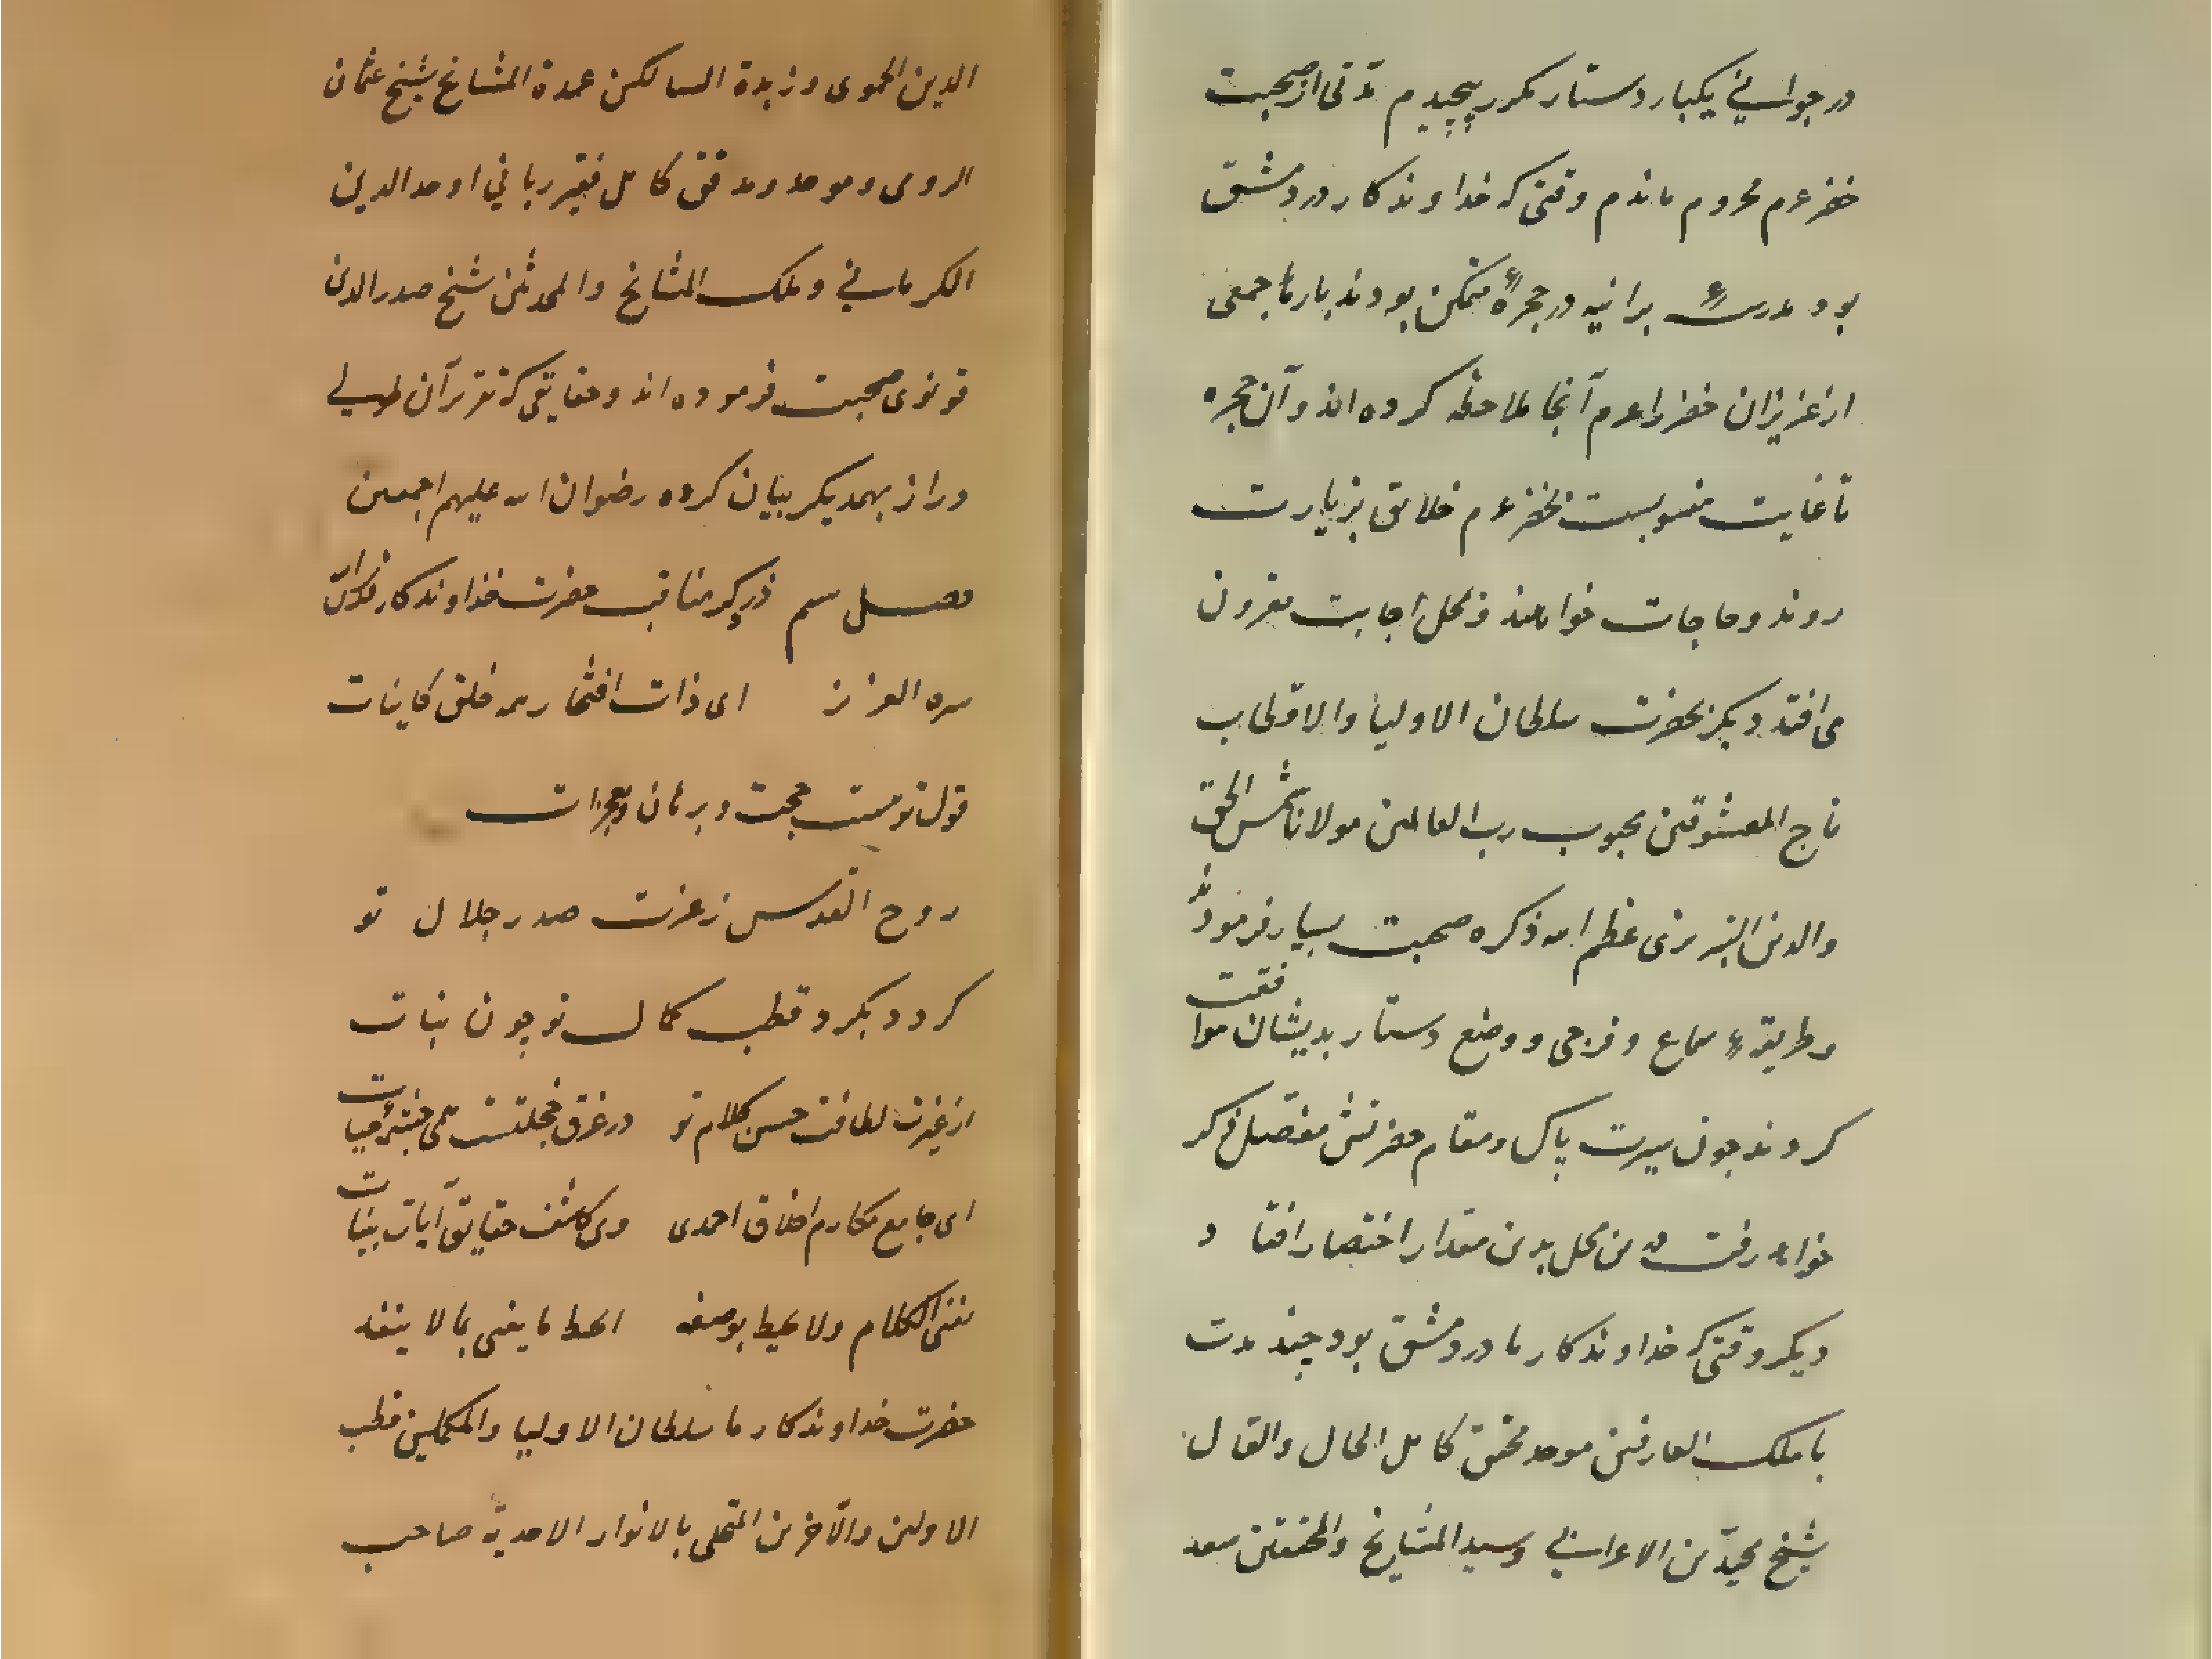 در جوانی یکبار دستار مکرر پیچیدم مدّتی از صحبت
خضر عم محروم ماندم وقتی که خداوندکار در دمشق
بود مدرسهٔ برانیه در حجرهٔ متمکن بودند بارها جمعی
از عزیزان خضر را عم آنجا ملاحظه کرده اند و آن حجره
تا غایت منسوبست بخضر عم خلایق بزیارت
روند و حاجات خواهند و بمحل اجابت مقرون
می افتد دیکر بحضرت سلطان الاولیا والاقطاب
تاج المعشوقین محبوب رب العالمین مولانا شمس الحق
والدین التبریزی عظم الله ذکره صحبت بسیار فرمودند
و طریقهٔ سماع و فرجی و وضع دستار بدیشان موافقت
کردند چون سیرت پاک و مقام حضرتش مفصّل ذکر
خواهد رفت درین محل بدین مقدار اختصار افتاد
دیکر وقتی که خداوندکار ما در دمشق بود چند مدت
با ملک العارفین موحد محقق کامل الحال والقال
شیخ محیّ الدین الاعرابی وسید المشایخ والمحققین سعد
الدین الحموی و زبدة السالکین عمدة المشایخ شیخ عثمان
الرومی و موحد و مدقق کامل فقیر ربانی اوحد الدین
الکرمانی و ملک المشایخ والمحدثین شیخ صدرالدین
قونوی صحبت فرموده اند و حقایقی که تقریر آن طولی
دارد بهمدیکر بیان کرده رضوان الله علیهم اجمعین
فصل سم ذکر مناقب حضرت خداوندکار قدّس الله
سره العزیز ای ذات افتخار همه خلق کاینات
قول تو هست حجت و برهان و معجزات
روح القدس ز عزت صدر جلال تو
کردد بکرد قطب کمال تو چون بنات
از غیرت لطافت حسن کلام تو در غرق خجلتست همی چشمهٔ حیات
ای جامع مکارم اخلاق احمدی وی کاشف حقایق آیات بینات
یفنی الکلام ولا یحیط بوصفه ایحیط ما یفنی بما لا ینفد
حضرت خداوندکار ما سلطان الاولیا والمکملین قطب
الاولین والآخرین المتحلی بالانوار الاحدیة صاحب